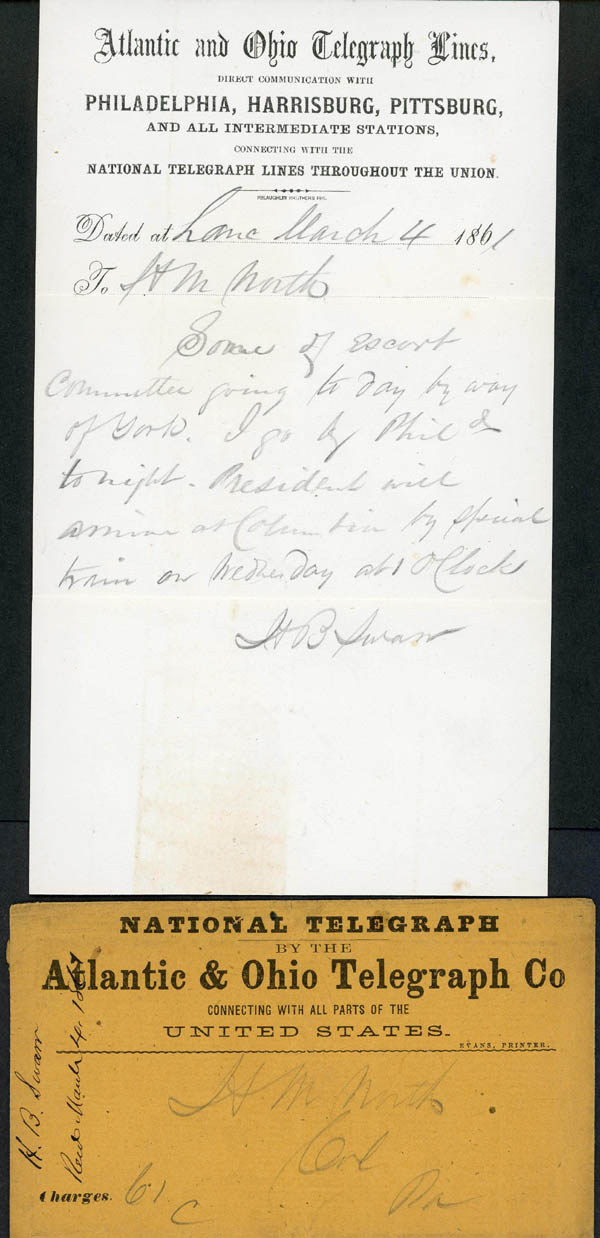 Atlantic and Ohio Telegraph Lines,
DIRECT COMMUNICATION WITH
PHILADELPHIA, HARRISBURG, PITTSBURG,
AND ALL INTERMEDIATE STATIONS,
CONNECTING WITH THE
NATIONAL TELEGRAPH LINES THROUGHOUT THE UNION.
M'LAUGHLIN BROTHERS PRS.
Dated at Lanc March 4 1861
To H M North
Some of escort
Committee going to day by way
of York. I go by Phil
to night. President will
arrive at Columbia by special
train on Wednesday at 1 OClock
H B Swarr
NATIONAL TELEGRAPH
BY THE
Atlantic & Ohio Telegraph Co
CONNECTING WITH ALL PARTS OF THE
UNITED STATES.
EVANS, PRINTER.
H. B. Swarr
Recd March 4. 1861
H. M North
Col
Pa
Charges. 61
C